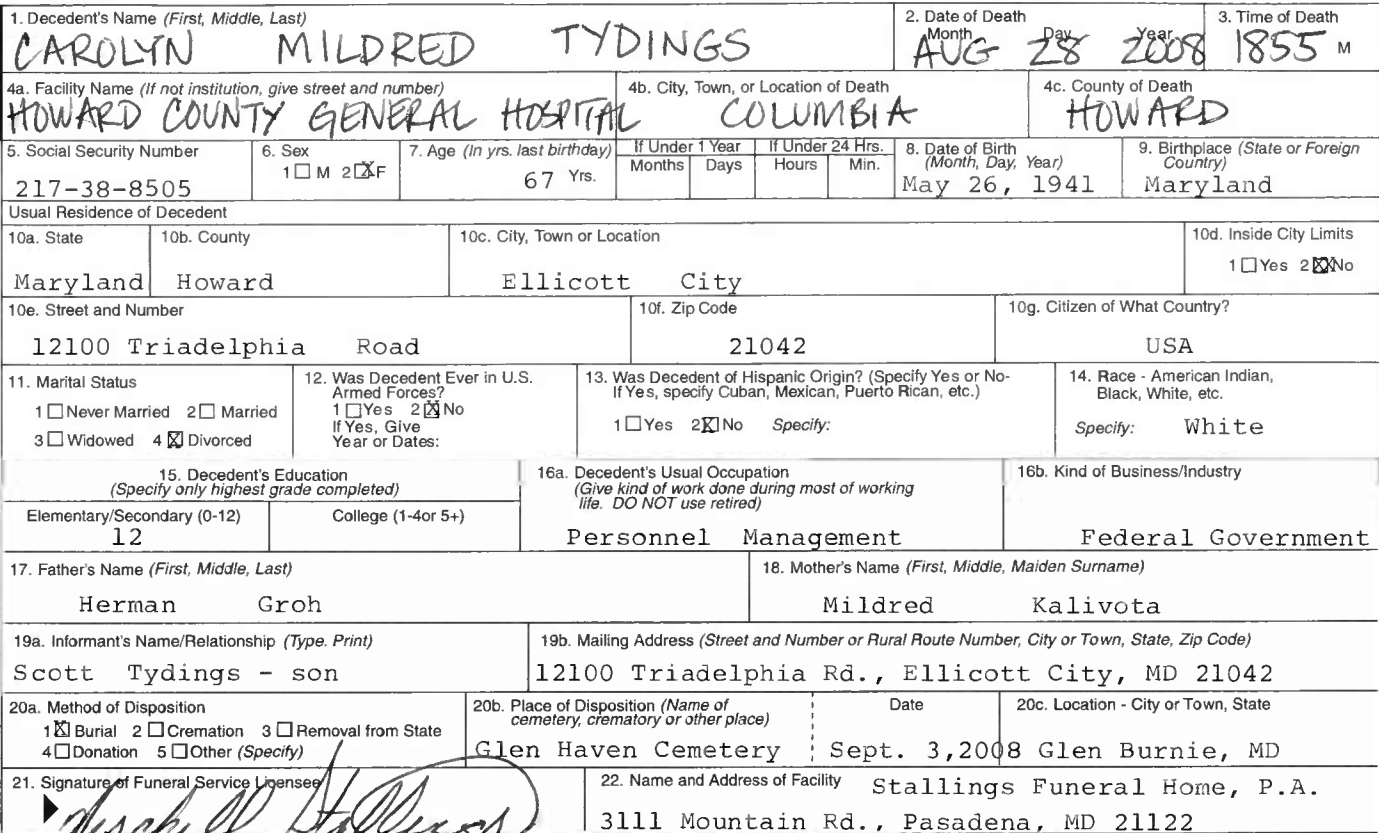 1. Decedent's Name (First, Middle, Last)
CAROLYN MILDRED TYDINGS
2. Date of Death
Month Day Year
AUG 28 2008
3. Time of Death
1855 M
4a. Facility Name (If not institution, give street and number)
HOWARD COUNTY GENERAL HOSPITAL
4b. City, Town, or Location of Death
COLUMBIA
4c. County of Death
HOWARD
5. Social Security Number
217-38-8505
6. Sex
1☐ M 2☒F
7. Age (In yrs. last birthday)
67 Yrs.
If Under 1 Year
Months Days
If Under 24 Hrs.
Hours Min.
8. Date of Birth
(Month, Day, Year)
May 26, 1941
9. Birthplace (State or Foreign
Country)
Maryland
Usual Residence of Decedent
10a. State
Maryland
10b. County
Howard
10c. City, Town or Location
Ellicott City
10d. Inside City Limits
1☐Yes 2☒No
10e. Street and Number
12100 Triadelphia Road
10f. Zip Code
21042
10g. Citizen of What Country?
USA
11. Marital Status
1☐Never Married 2☐ Married
3☐Widowed 4☒ Divorced
12. Was Decedent Ever in U.S.
Armed Forces?
1☐Yes 2☒No
If Yes, Give
Year or Dates:
13. Was Decedent of Hispanic Origin? (Specify Yes or No-
If Yes, specify Cuban, Mexican, Puerto Rican, etc.)
1☐Yes 2☒No Specify:
14. Race - American Indian,
Black, White, etc.
Specify: White
15. Decedent's Education
(Specify only highest grade completed)
Elementary/Secondary (0-12)
12
College (1-4or 5+)
16a. Decedent's Usual Occupation
(Give kind of work done during most of working
life. DO NOT use retired)
Personnel Management
16b. Kind of Business/Industry
Federal Government
17. Father's Name (First, Middle, Last)
Herman Groh
18. Mother's Name (First, Middle, Maiden Surname)
Mildred Kalivota
19a. Informant's Name/Relationship (Type. Print)
Scott Tydings - son
19b. Mailing Address (Street and Number or Rural Route Number, City or Town, State, Zip Code)
12100 Triadelphia Rd., Ellicott City, MD 21042
20a. Method of Disposition
1☒ Burial 2☐Cremation 3☐Removal from State
4☐Donation 5☐Other (Specify)
20b. Place of Disposition (Name of
cemetery, crematory or other place)
Glen Haven Cemetery
Date
Sept. 3,2008
20c. Location - City or Town, State
Glen Burnie, MD
21. Signature of Funeral Service Licensee
Stallings
22. Name and Address of Facility Stallings Funeral Home, P.A.
3111 Mountain Rd., Pasadena, MD 21122